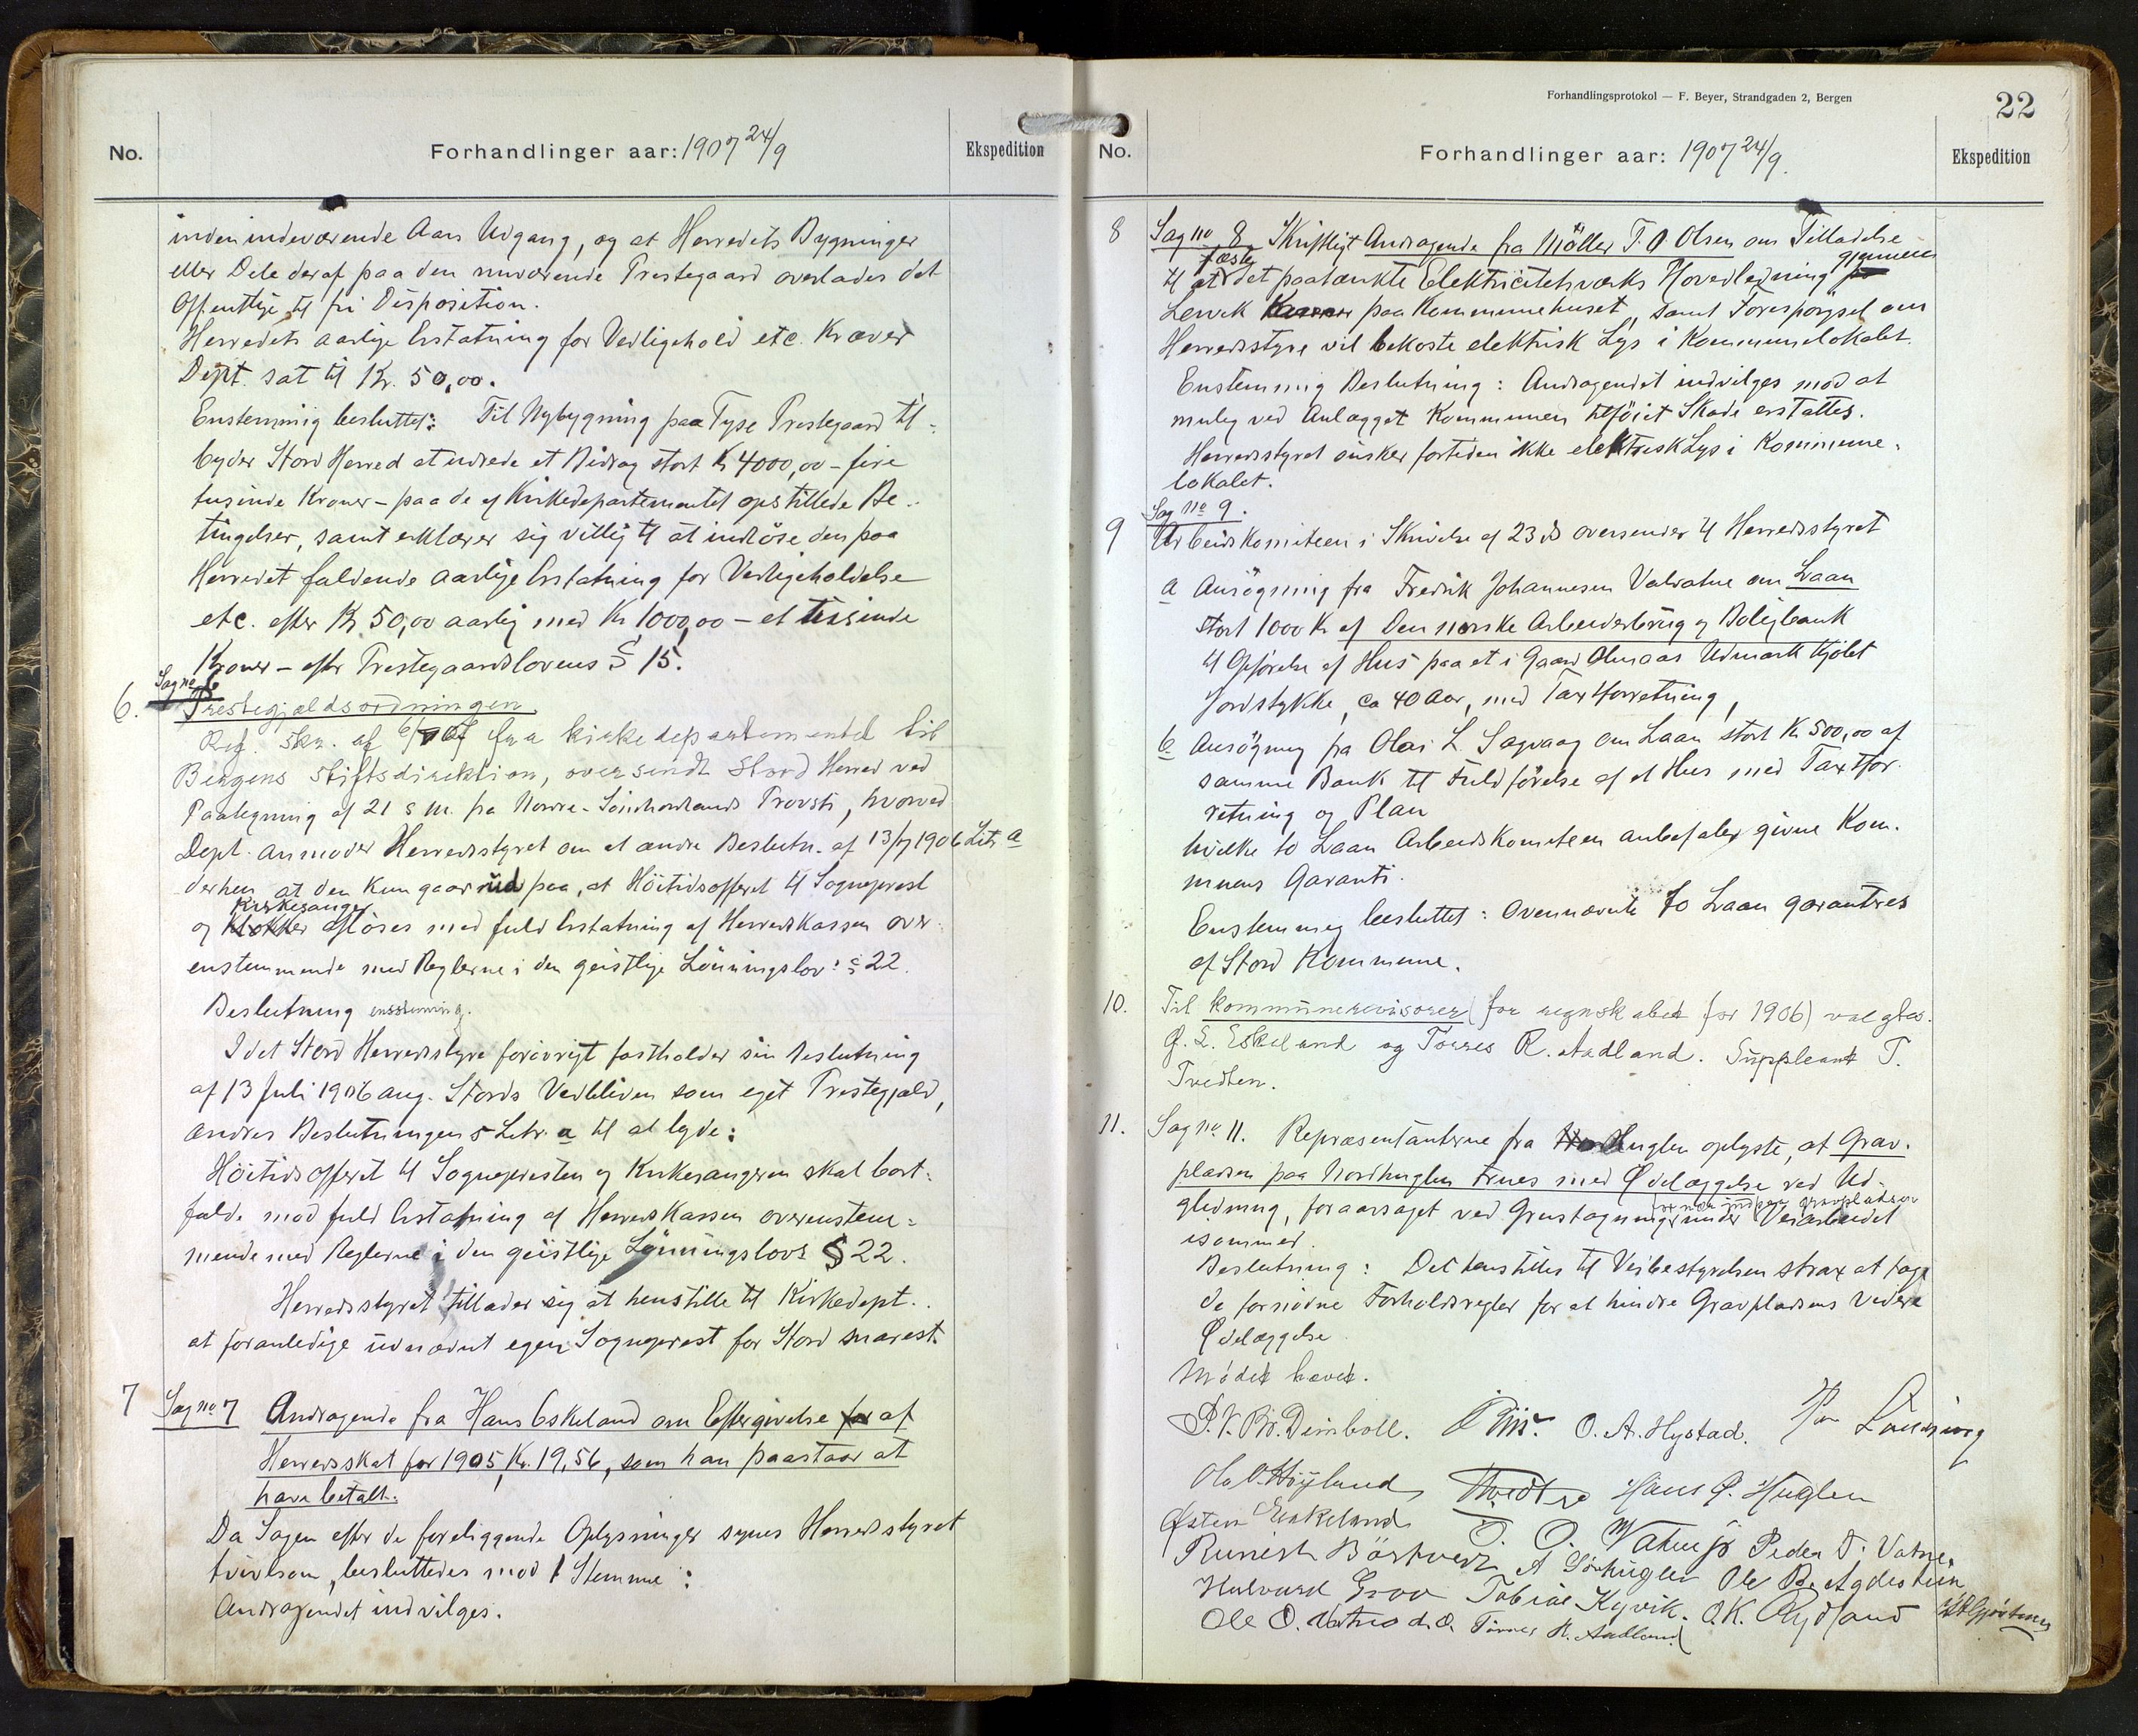 No.
Forhandlinger aar: 1907 24/9
Ekspedition
inden indeværende Aars Udgang, og at Herredets Bygninger
eller Dele deraf paa den nuværende Prestegaard overlades det
Offentlige til fri Disposition.
Herredets aarlige Erstatning for Vedligehold etc. kræver
Dept. sat til Kr. 50,00.
Enstemmig besluttet: Til Nybygning paa Tyse Prestegaard til-
byder Stord Herred at udrede et Bidrag stort Kr 4000,00 - fire
tusinde Kroner - paa de af Kirkedepartementet opstillede Be-
tingelser, samt erklærer sig villig til at indløse den paa
Herredet faldende aarlige Erstatning for Vedligeholdelse
etc. efter Kr 50,00 aarlig med Kr 1000,00 - et tusinde
Kroner - efter Prestegaardslovens § 15.
Sag no 6
6. Prestegjældsordningen.
Ref. skr. af fra kirkedepartementet til
Bergens Stiftsdirektion, oversendt Stord Herred ved
Paategning af 21 s. m. fra Nordre-Søndhordlands Provsti, hvorved
Dept. anmoder Herredsstyret om at ændre Beslutn. af 13/7 1906 Litr a
derhen at den kun gaar ud paa, at Höitidsofferet til Sogneprest
Kirkesanger
og Klokker aflöses med fuld Erstatning af Herredskassen over-
enstemmende med Reglerne i den geistlige Lönningslov: § 22.
Beslutning enstemmig.
Idet Stord Herredsstyre forövrigt fastholder sin Beslutning
af 13 Juli 1906 ang. Stords Vedbliven som eget Prestegjæld,
ændres Beslutningens Litr. a til at lyde:
Höitidsofferet til Sognepresten og Kirkesangeren skal bort-
falde mod fuld Erstatning af Herredskassen overenstem-
mende med Reglerne i den geistlige Lönningslovs § 22.
Herredsstyret tillader sig at henstille til Kirkedept.
at foranledige udnævnt egen Sogneprest for Stord snarest.
7 Sag no 7 Andragende fra Hans Eskeland om Eftergivelse for af
Herredsskat for 1905, Kr. 19,56, som han paastaar at
have betalt.
Da Sagen efter de foreliggende Oplysninger synes Herredsstyret
tvivlsom, besluttedes mod 1 Stemme:
Andragendet indvilges.
Forhandlingsprotokol — F. Beyer, Strandgaden 2, Bergen
22
No.
Forhandlinger aar: 1907 24/9.
Ekspedition
8 Sag no 8. Skriftligt Andragende fra Möller T. O. Olsen om Tilladelse
fæste gjennem
til at det paatænkte Elektricitetsværks Hovedledning
Lervik paa Kommunehuset, samt Forespörgsel om
Herredsstyre vil bekoste elektrisk Lys i Kommunelokalet.
Enstemmig Beslutning: Andragendet indvilges mod at
mulig ved Anlægget Kommunen tilföiet Skade erstattes.
Herredsstyret önsker fortiden ikke elektrisk Lys i Kommune-
lokalet.
Sag no 9.
9 Arbeidskomiteen i Skrivelse af 23 ds oversender til Herredsstyret
a Ansögning fra Fredrik Johannesen Valvatne om Laan
stort 1000 Kr af Den norske Arbeiderbrug og Boligbank
til Opförelse af Hus paa et i Gaard Almaas Udmark kjöbt
Jordstykke, ca 40 Aar, med Taxtforretning,
b Ansögning fra Olai L Sagvaag om Laan stort Kr 500,00 af
samme Bank til Fuldförelse af et Hus med Taxtfor-
retning og Plan
hvilke to Laan Arbeidskomiteen anbefaler givne Kom-
munens Garanti.
Enstemmig besluttet: Ovennævnte to Laan garanteres
af Stord Kommune.
10. Til kommunerevisorer (for regnskabet for 1906) valgtes.
G. L. Eskeland og Torres R. Aadland. Suppleant T.
Tvedten.
11. Sag no 11. Repræsentanterne fra Huglen oplyste, at Grav-
pladsen paa Nordhuglen trues med Ødelæggelse ved Ud-
glidning, foraarsaget ved Grustagning under Veiarbeidet
isommer.
Beslutning: Det henstilles til Veibestyrelsen strax at tage
de fornödne Forholdsregler for at hindre Gravpladsens videre
Ødelæggelse
Mødet hævet.
O. A. Hystad.
Ola O. Höyland Tvedten Hans J. Huglen
Østen Eskeland O. O. Vatne jr Peder T. Vatne.
A Sörhuglen Ole B. Agdestein
Halvard Grov Tobias Kyvik. O. K. Rydland
Torres R. Aadland